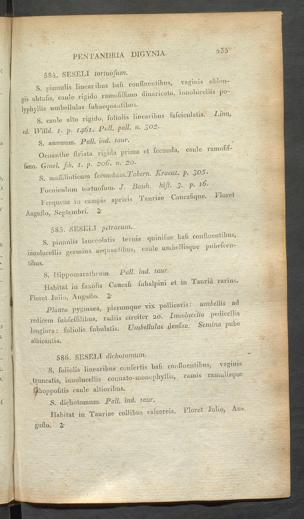 PENTANDRIA DIGYNIA. 235
584. SESELI tortuosum.
S. pinnulis linearibus basi confluentibus, vaginis oblon-
go obtusis, caule rigido ramosissimo divaricato, involucellis po-
lyphyllis umbellulas subaequantibus.
S. caule alto rigido, foliolis linearibus fasciculatis. Linn.
ed. Willd. 1. p. 1461. Pall. pall. n. 302.
S. annuum. Pall. ind. taur.
Oenanthe striata rigida prima et secunda, caule ramosis-
simo. Gmel. sib. 1. p. 206. n. 20.
S. massilioticum secundum. Tabern. Kraeut. p. 305.
Foeniculum tortuosum. J. Bauh. hist. 3. p. 16.
Frequens in campis apricis Tauriae Caucasique. Floret
Augusto, Septembri. ♃
585. SESELI petraeum.
S. pinnulis lanceolatis ternis quinisve basi confluentibus,
involucellis germina aequantibus, caule umbellisque pubescen-
tibus.
S. Hippomarathrum. Pall. ind. taur.
Habitat in saxosis Caucasi subalpini et in Tauria rarius.
Floret Julio, Augusto. ♃
Planta pygmaea, plerumque vix pollicaris: umbellis ad
radicem subsessilibus, radiis circiter 20. Involucella pedicellis
longiora: foliolis subulatis. Umbellulas densae. Semina pube
albicantia.
586. SESELI dichotomum.
S. foliolis linearibus confertis basi confluentibus, vaginis
truncatis, involucellis connato-monophyllis, ramis ramulisque
oppositis caule altioribus.
S. dichotomum. Pall. ind. taur.
Habitat in Tauriae collibus calcareis. Floret Julio, Au-
gusto. ♃